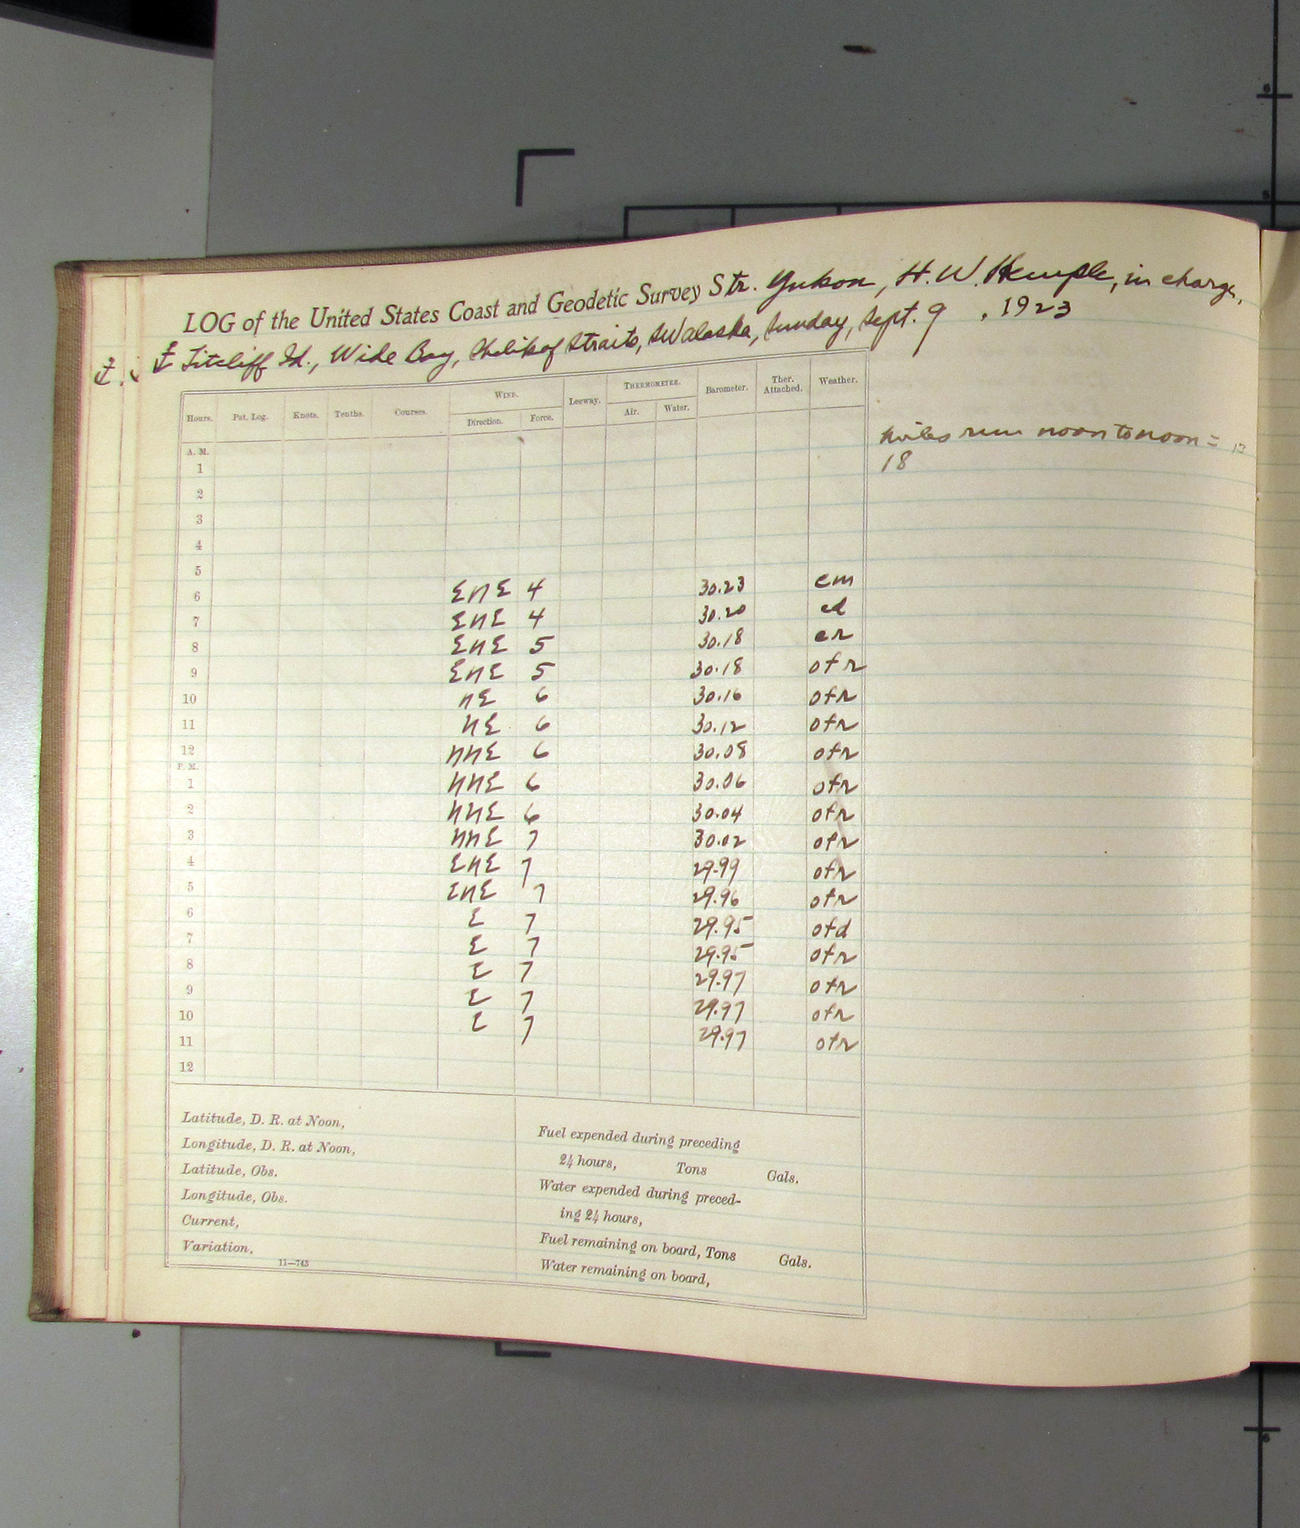 LOG of the United States Coast and Geodetic Survey Str. Yukon, H. W. Hemple, in charge,
Titcliff Id., Wide Bay, Shelikof Straits, SWalaska, Sunday, Sept. 9, 1923
Hours. Pat. Log. Knots. Tenths. Courses. WIND. Leeway. THERMOMETER. Barometer. Ther. Attached. Weather.
Direction. Force. Air. Water.
A. M.
miles run noon to noon =
18
1
2
3
4
5
6 ENE 4 30.23 cm
7 ENE 4 30.20 cd
8 ENE 5 30.18 cr
9 ENE 5 30.18 ofr
10 NE 6 30.16 ofr
11 NE 6 30.12 ofr
12 NNE 6 30.08 ofr
P. M.
1 NNE 6 30.06 ofr
2 NNE 6 30.04 ofr
3 NNE 7 30.02 ofr
4 ENE 7 29.99 ofr
5 ENE 7 29.96 ofr
6 E 7 29.95 ofd
7 E 7 29.95 ofr
8 E 7 29.97 ofr
9 E 7 29.97 ofr
10 E 7 29.97 ofr
11
12
Latitude, D. R. at Noon,
Longitude, D. R. at Noon,
Latitude, Obs.
Longitude, Obs.
Current,
Variation,
11—743
Fuel expended during preceding
24 hours, Tons Gals.
Water expended during preced-
ing 24 hours,
Fuel remaining on board, Tons Gals.
Water remaining on board,